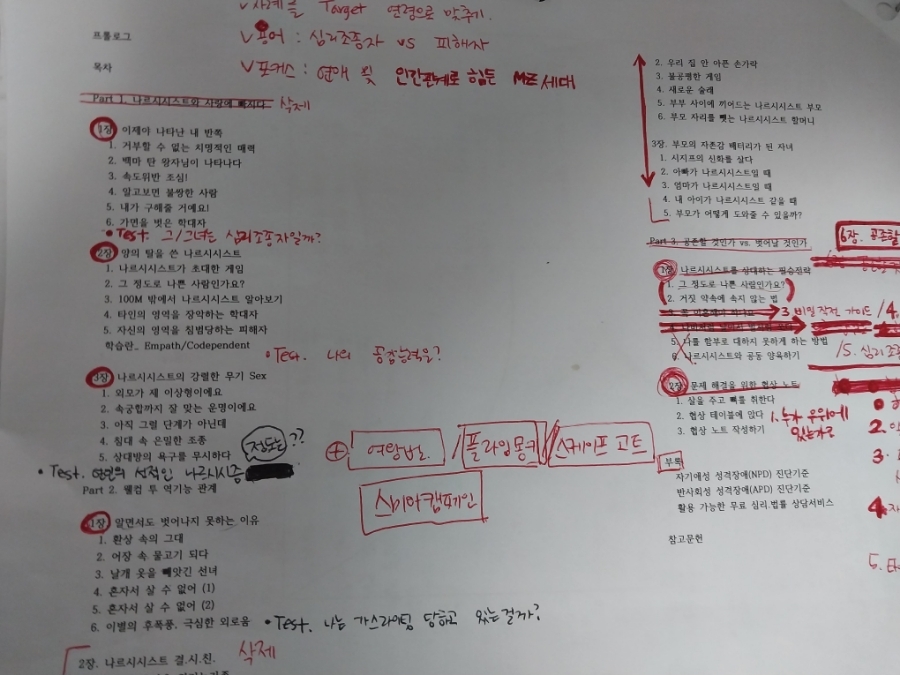 ∨ 사례를 Target 연령으로 맞추기.
프롤로그
∨ 용어 : 심리조종자 vs 피해자
목차
∨ 포커스 : 연애 및 인간관계로 힘든 MZ세대
Part 1. 나르시시스트와 사랑에 빠지다 삭제
1장 이제야 나타난 내 반쪽
1. 거부할 수 없는 치명적인 매력
2. 백마 탄 왕자님이 나타나다
3. 속도위반 조심!
4. 알고보면 불쌍한 사람
5. 내가 구해줄 거예요!
6. 가면을 벗은 학대자
• Test. 그/그녀는 심리조종자일까?
2장 양의 탈을 쓴 나르시시스트
1. 나르시시스트가 초대한 게임
2. 그 정도로 나쁜 사람인가요?
3. 100M 밖에서 나르시시스트 알아보기
4. 타인의 영역을 장악하는 학대자
5. 자신의 영역을 침범당하는 피해자
학습란_ Empath/Codependent
• Test. 나의 공감능력은?
3장 나르시시스트의 강렬한 무기 Sex
1. 외모가 제 이상형이에요
2. 속궁합까지 잘 맞는 운명이에요
3. 아직 그럴 단계가 아닌대
4. 침대 속 은밀한 조종
5. 상대방의 욕구를 무시하다
정도는??
• Test. 연인의 성적인 나르시시즘
⊕ 여왕벌 / 플라잉몽키 / 스케이프 고트
스미어캠페인
Part 2. 웰컴 투 역기능 관계
1장 알면서도 벗어나지 못하는 이유
1. 환상 속의 그대
2. 어장 속 물고기 되다
3. 날개 옷을 빼앗긴 선녀
4. 혼자서 살 수 없어 (1)
5. 혼자서 살 수 없어 (2)
6. 이별의 후폭풍, 극심한 외로움
• Test. 나는 가스라이팅 당하고 있는걸까?
2장. 나르시시스트 결.시.친. 삭제
2. 우리 집 안 아픈 손가락
3. 불공평한 게임
4. 새로운 술래
5. 부부 사이에 끼어드는 나르시시스트 부모
6. 부모 자리를 뺏는 나르시시스트 할머니
3장. 부모의 자존감 배터리가 된 자녀
1. 시지프의 신화를 살다
2. 아빠가 나르시시스트일 때
3. 엄마가 나르시시스트일 때
4. 내 아이가 나르시시스트 같을 때
5. 부모가 어떻게 도와줄 수 있을까?
Part 3. 공존할 것인가 vs. 벗어날 것인가
6장. 공존할
1장 나르시시스트를 상대하는 필승전략
1. 그 정도로 나쁜 사람인가요?
2. 거짓 약속에 속지 않는 법
3. 비밀작전 가이드 / 4.
5. 나를 함부로 대하지 못하게 하는 방법
6. 나르시시스트와 공동 양육하기
/5. 심리조종
2장 문제 해결을 위한 협상 노트
1. 살을 주고 뼈를 취한다
2. 협상 테이블에 앉다
3. 협상 노트 작성하기
1. 누가 우위에 있는가?
2.
3.
4.
5.
부록
자기애성 성격장애(NPD) 진단기준
반사회성 성격장애(APD) 진단기준
활용 가능한 무료 심리.법률 상담서비스
참고문헌